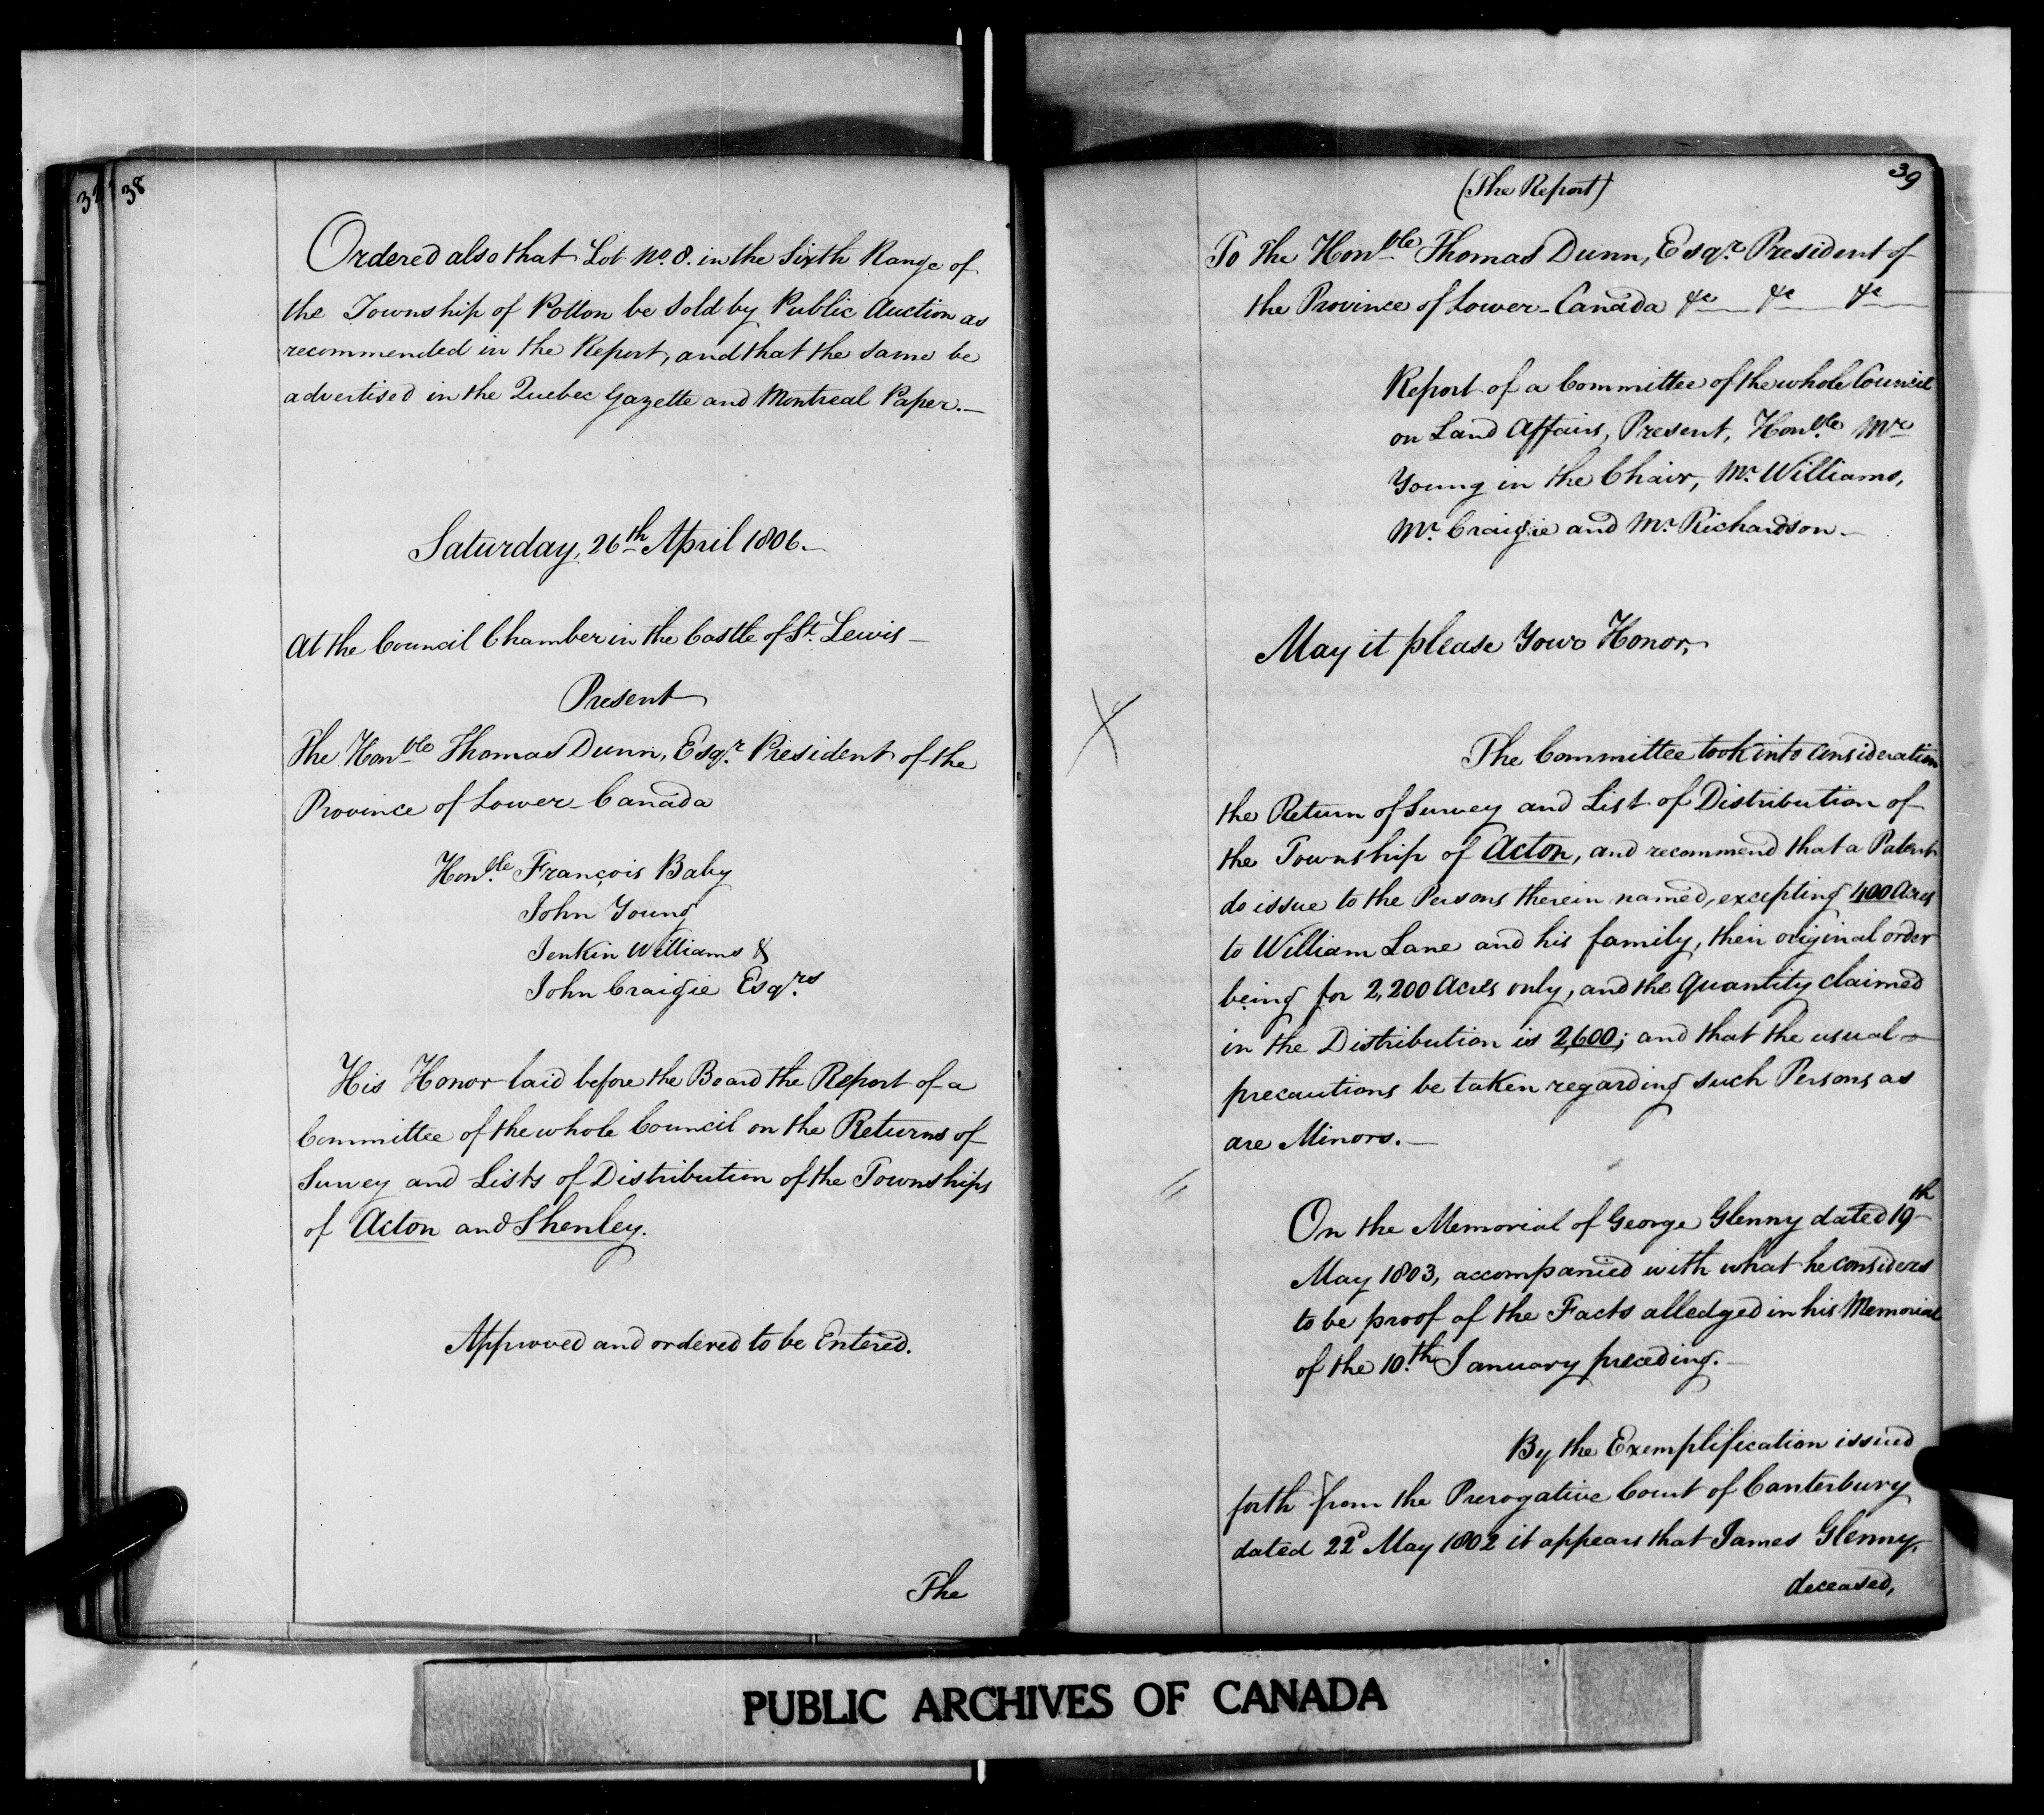 38
Ordered also that Lot No. 8. in the Sixth Range of
the Township of Potton be Sold by Public Auction as
recommended in the Report, and that the same be
advertised in the Quebec Gazette and Montreal Paper.—
Saturday, 26th April 1806.—
At the Council Chamber in the Castle of St. Lewis—
Present
The Honble Thomas Dunn, Esqr. President of the
Province of Lower-Canada
Honble François Baby
John Young
Jenkin Williams &
John Craigie Esqrs
His Honor laid before the Board the Report of a
Committee of the whole Council on the Returns of
Survey and Lists of Distribution of the Townships
of Acton and Shenley.
Approved and ordered to be Entered.
The
39
(The Report)
To the Honble Thomas Dunn, Esqr. President of
the Province of Lower-Canada &c &c &c
Report of a Committee of the whole Council
on Land Affairs, Present, Honble Mr
Young in the Chair, Mr. Williams,
Mr. Craigie and Mr. Richardson.—
May it please Your Honor,
The Committee took into consideration
the Return of Survey and List of Distribution of
the Township of Acton, and recommend that a Patent
do issue to the Persons therein named, excepting 400 Acres
to William Lane and his family, their original order
being for 2,200 Acres only, and the Quantity claimed
in the Distribution is 2,600; and that the usual
precautions be taken regarding such Persons as
are Minors.—
On the Memorial of George Glenny dated 19th
May 1803, accompanied with what he considers
to be proof of the Facts alledged in his Memorial
of the 10.th January preceding.—
By the Exemplification issued
forth from the Prerogative Court of Canterbury
dated 22d May 1802 it appears that James Glenny,
deceased,
PUBLIC ARCHIVES OF CANADA